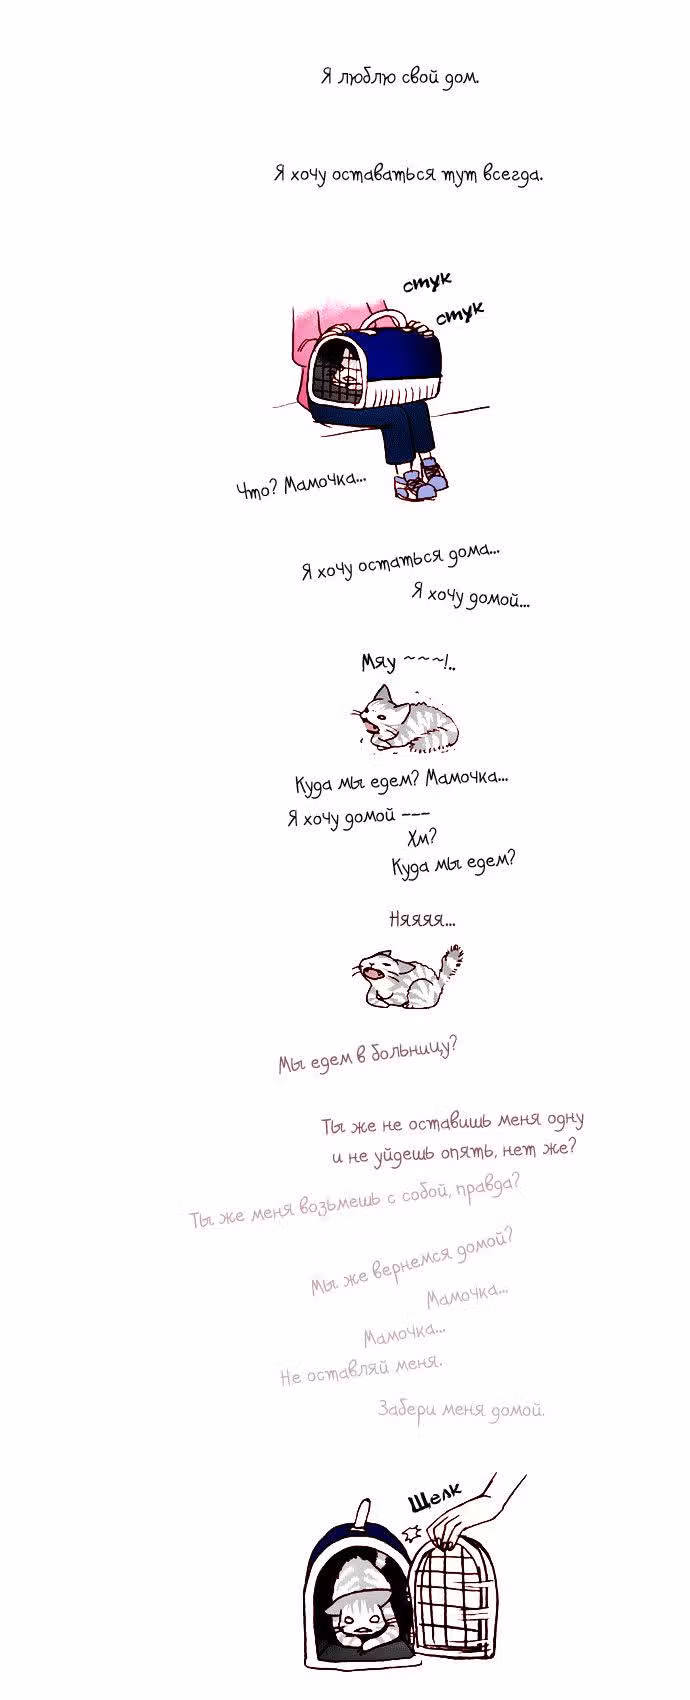 Я люблю свой дом.
Я хочу оставаться тут всегда.
стук
стук
Что? Мамочка...
Я хочу остаться дома...
Я хочу домой...
Мяу ~~~!..
Куда мы едем? Мамочка...
Я хочу домой ---
Хм?
Куда мы едем?
Няяяя...
Мы едем в больницу?
Ты же не оставишь меня одну
и не уйдешь опять, нет же?
Ты же меня возьмешь с собой, правда?
Мы же вернемся домой?
Мамочка...
Мамочка...
Не оставляй меня.
Забери меня домой.
Щелк